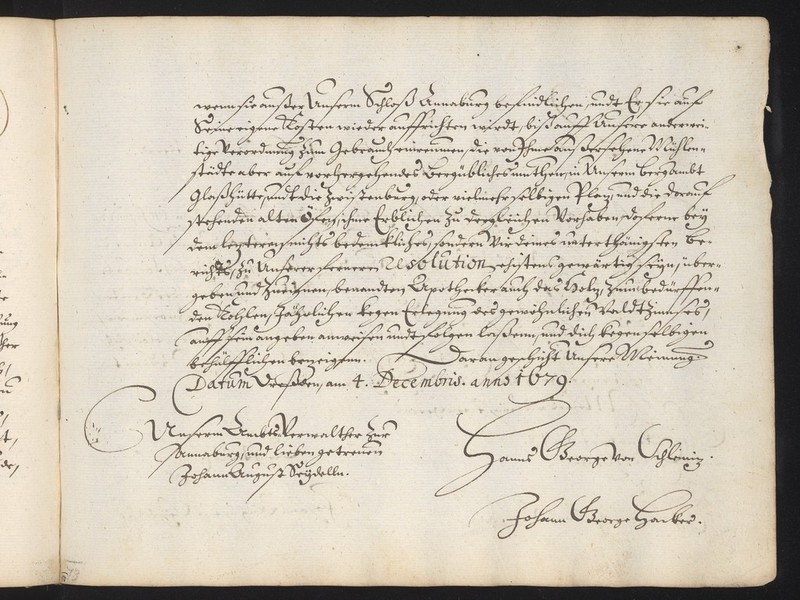 wenn sie außer Unserm Schloß Annaburg befindlichen, undt Er sie auf
Seine eigene Kosten wieder auffrichten wirdt, biß auff Unsere anderwei-
tige Verordnung zum Gebrauch einreumen, die von Ihme ausersehene Mühlen-
städte aber auf vorhergehendes Bergübliches muthen, in Unserm Bergambt
Glaßhütte, undt die oder vielmehr selbigen Plaz, und die darauf
stehenden alten Öfen, ihme Erblichen zu dergleichen Vorhaben, doferne bey
dem leztern nichts bedenckliches, sondern Wir deines unterthänigsten Be-
richts, zu Unserer fernern resolution ehistens gewärtig seyn, über-
geben und benandten Apothecker auch das Holz, zum bedürffen-
den Kohlen, Jährlichen kegen Erlegung des gewöhnlichen Waldt Zinnßes,
auff sein angeben anweisen undt folgen laßenn, und dich kegen selbigen
behülfflichen bezeigenn. Daran geschicht Unsere Meinung.
Datum Dreßden, am 4. Decembris. anno 1679.
Unserm Ambts Verwalther zur
Annaburg, und lieben getreuen
Johann August Seydelln.
Hanns George von Schleiniz.
Johann George Hacker.